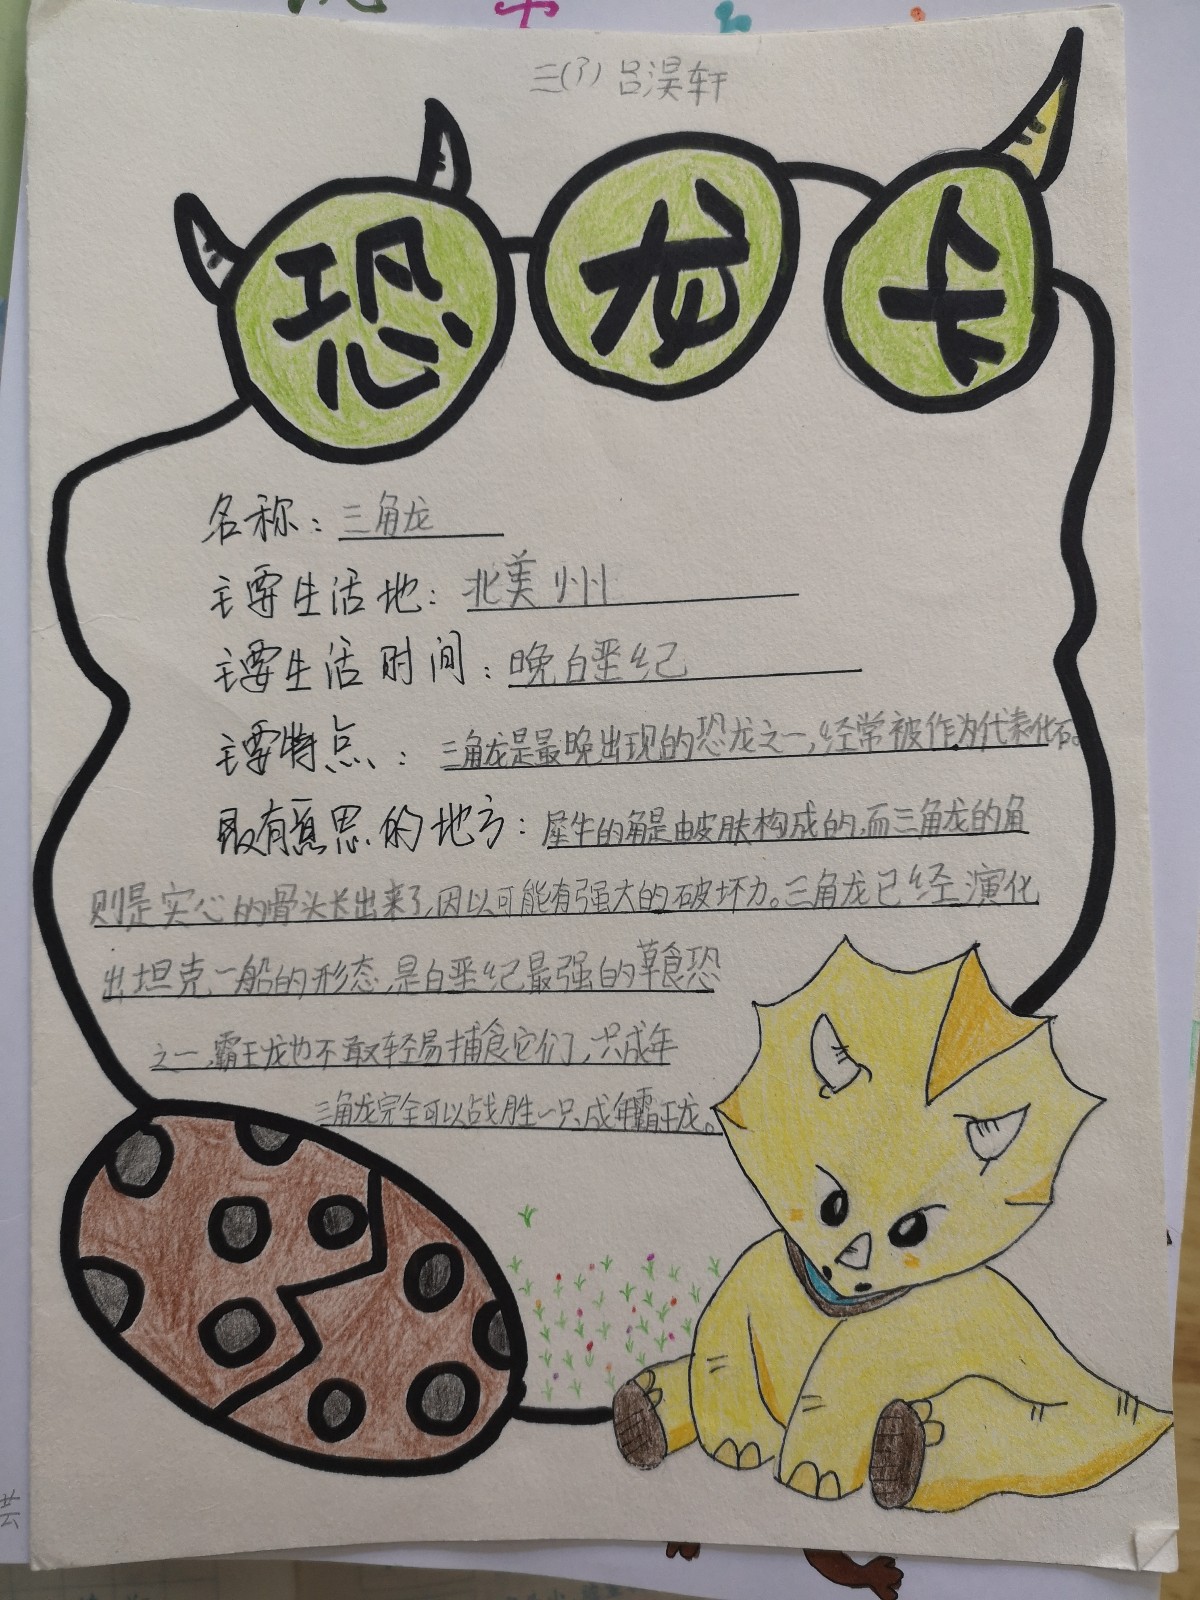 三(7) 吕淏轩
恐龙卡
名称：三角龙
主要生活地：北美州
主要生活时间：晚白垩纪
主要特点：三角龙是最晚出现的恐龙之一，经常被作为代表化石。
最有意思的地方：犀牛的角是由皮肤构成的，而三角龙的角
则是实心的骨头长出来了，因以可能有强大的破坏力。三角龙已经演化
出坦克一般的形态，是白垩纪最强的草食恐
之一，霸王龙也不敢轻易捕食它们，只成年
三角龙完全可以战胜一只成年霸王龙。
芸